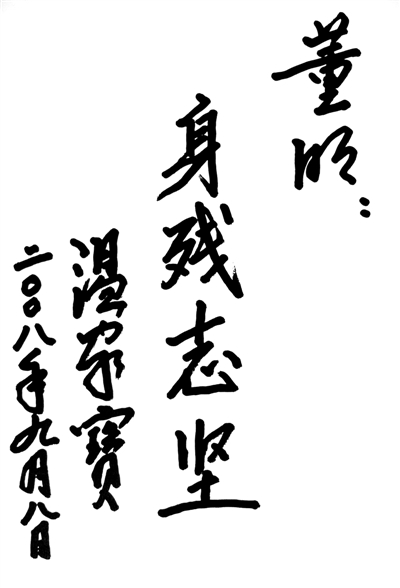 董明：
身残志坚
温家宝
二〇〇八年九月八日